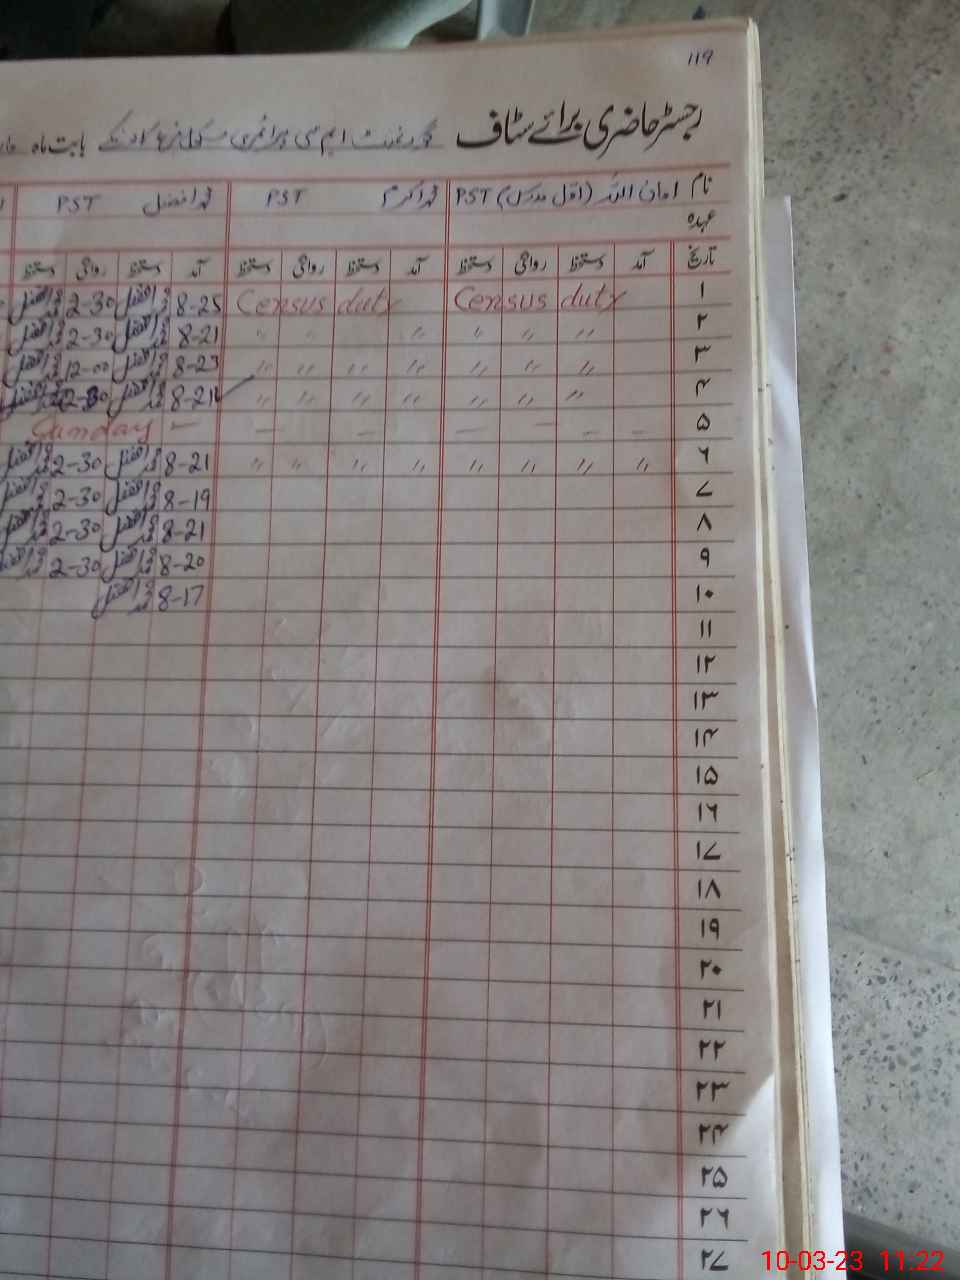 119
رجسٹر حاضری برائے سٹاف گورنمنٹ ایم سی پرائمری بابت ماہ
نام امان اللہ (اول مدرس) PST محمد اکرم PST محمد افضل PST
عہدہ
تاریخ آمد دستخط روانگی دستخط آمد دستخط روانگی دستخط آمد دستخط روانگی دستخط
۱ Census duty Census duty 8-25 محمد افضل 2-30 محمد افضل
۲ " " " " " " 8-21 محمد افضل 2-30 محمد افضل
۳ " " " " " " " 8-23 محمد افضل 12-00 محمد افضل
۴ " " " " " " " 8-21 محمد افضل 12-30 محمد افضل
۵ — — — — — — Sunday —
۶ " " " " " " " " 8-21 محمد افضل 2-30 محمد افضل
۷ 8-19 محمد افضل 2-30 محمد افضل
۸ 8-21 محمد افضل 2-30 محمد افضل
۹ 8-20 محمد افضل 2-30 محمد افضل
۱۰ 8-17 محمد افضل
۱۱
۱۲
۱۳
۱۴
۱۵
۱۶
۱۷
۱۸
۱۹
۲۰
۲۱
۲۲
۲۳
۲۴
۲۵
۲۶
۲۷
10-03-23 11:22